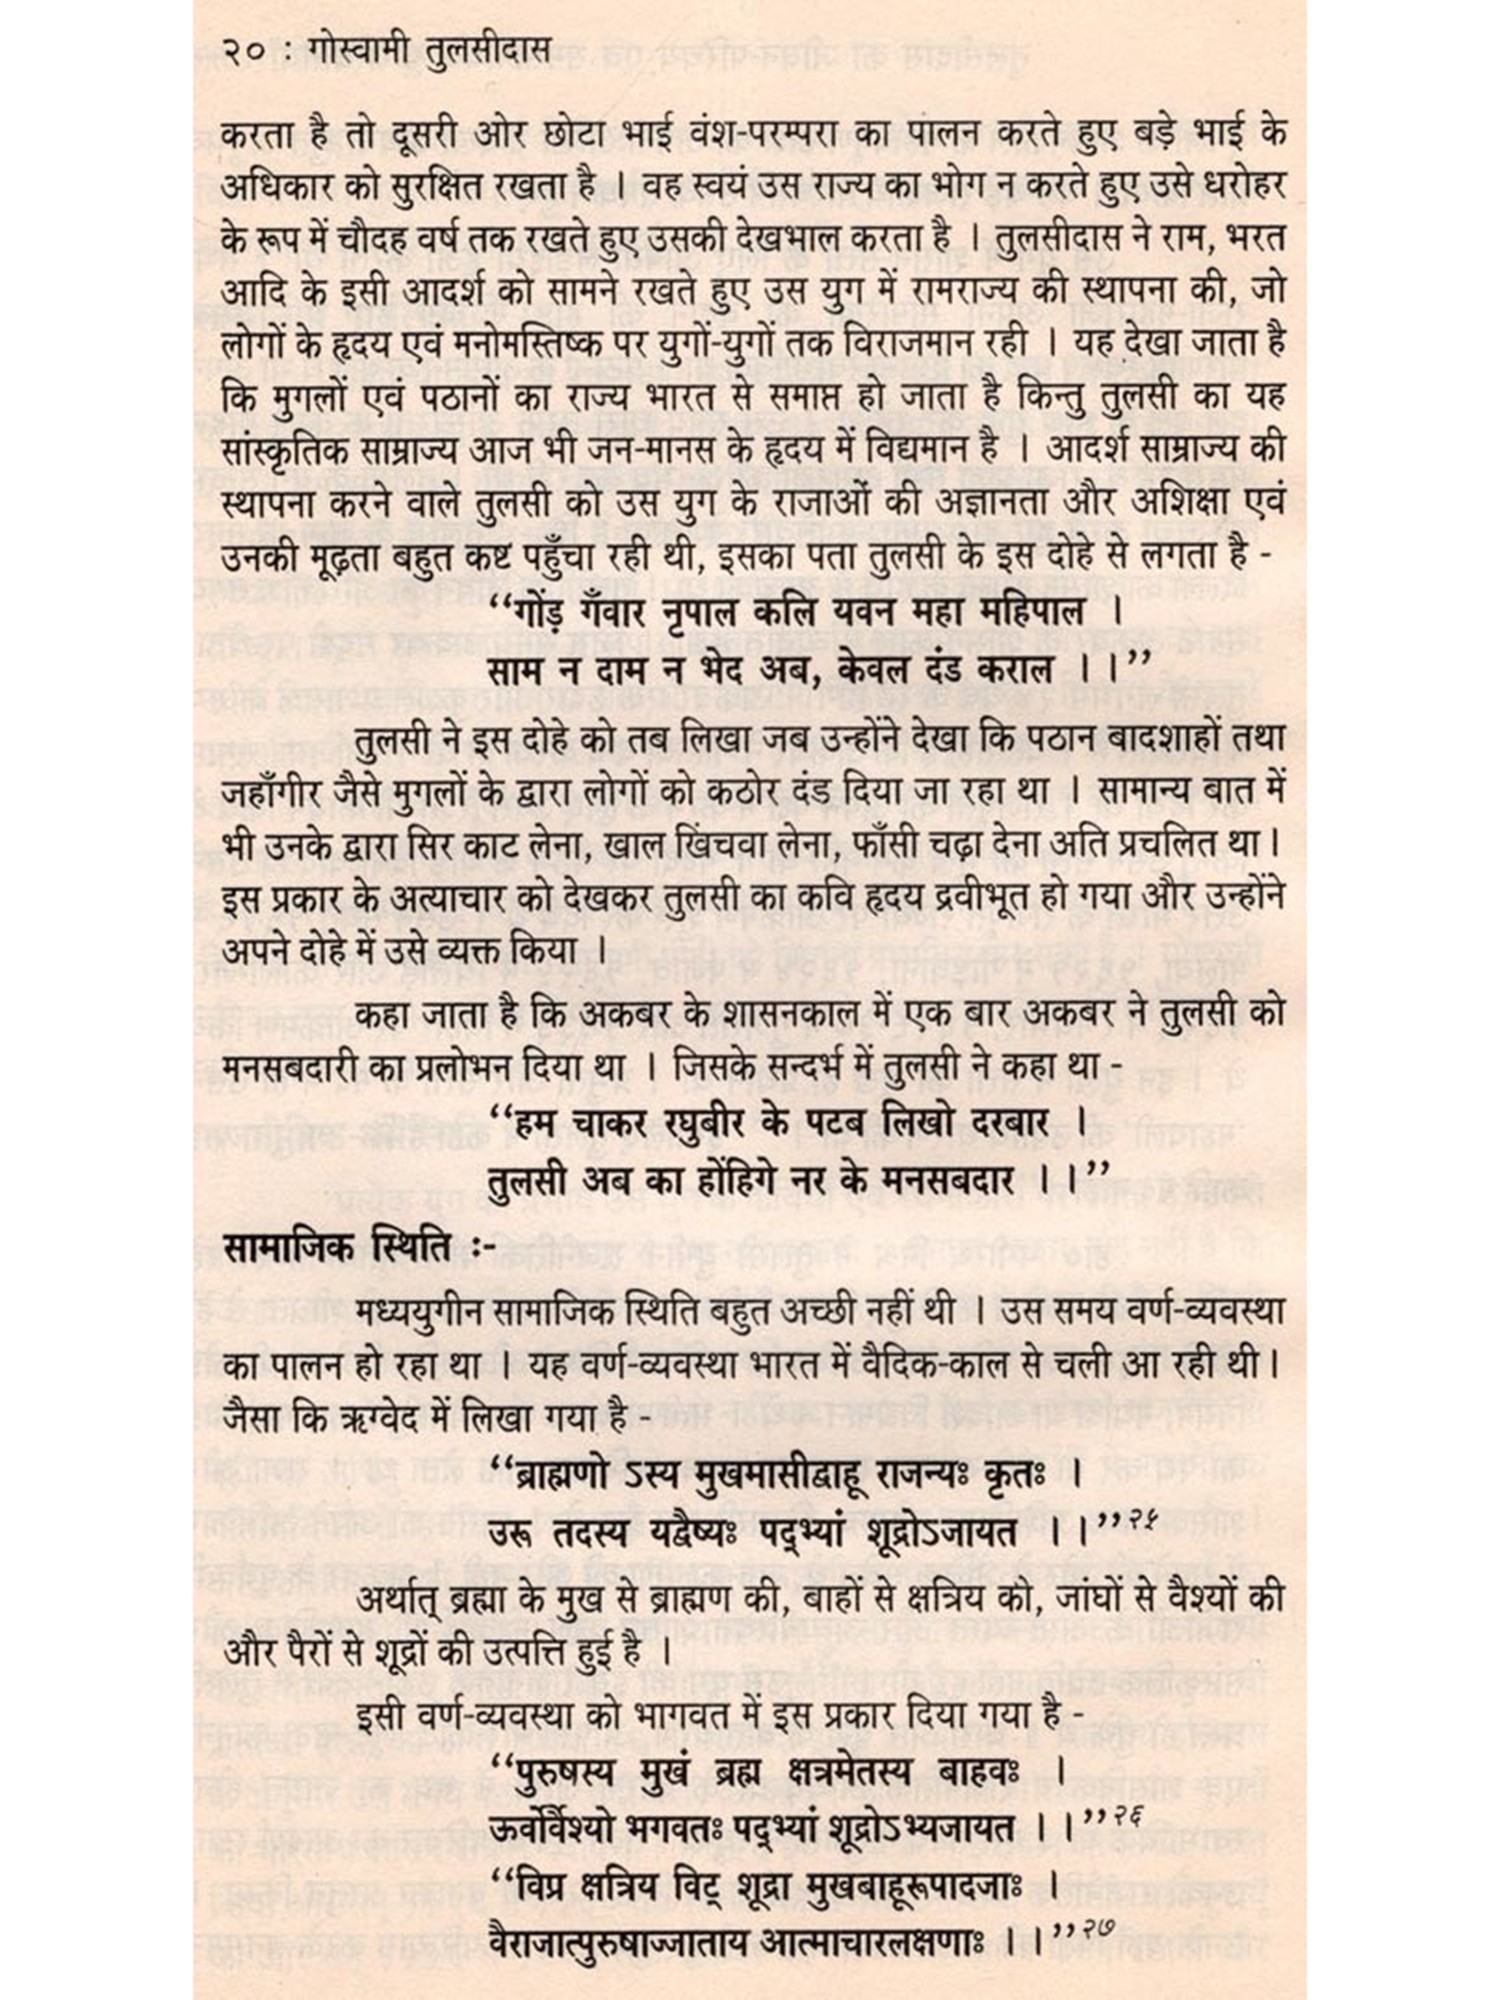 २० : गोस्वामी तुलसीदास
करता है तो दूसरी ओर छोटा भाई वंश-परम्परा का पालन करते हुए बड़े भाई के
अधिकार को सुरक्षित रखता है । वह स्वयं उस राज्य का भोग न करते हुए उसे धरोहर
के रूप में चौदह वर्ष तक रखते हुए उसकी देखभाल करता है । तुलसीदास ने राम, भरत
आदि के इसी आदर्श को सामने रखते हुए उस युग में रामराज्य की स्थापना की, जो
लोगों के हृदय एवं मनोमस्तिष्क पर युगों-युगों तक विराजमान रही । यह देखा जाता है
कि मुगलों एवं पठानों का राज्य भारत से समाप्त हो जाता है किन्तु तुलसी का यह
सांस्कृतिक साम्राज्य आज भी जन-मानस के हृदय में विद्यमान है । आदर्श साम्राज्य की
स्थापना करने वाले तुलसी को उस युग के राजाओं की अज्ञानता और अशिक्षा एवं
उनकी मूढ़ता बहुत कष्ट पहुँचा रही थी, इसका पता तुलसी के इस दोहे से लगता है -
“गोंड़ गँवार नृपाल कलि यवन महा महिपाल ।
साम न दाम न भेद अब, केवल दंड कराल ।।”
तुलसी ने इस दोहे को तब लिखा जब उन्होंने देखा कि पठान बादशाहों तथा
जहाँगीर जैसे मुगलों के द्वारा लोगों को कठोर दंड दिया जा रहा था । सामान्य बात में
भी उनके द्वारा सिर काट लेना, खाल खिंचवा लेना, फाँसी चढ़ा देना अति प्रचलित था।
इस प्रकार के अत्याचार को देखकर तुलसी का कवि हृदय द्रवीभूत हो गया और उन्होंने
अपने दोहे में उसे व्यक्त किया ।
कहा जाता है कि अकबर के शासनकाल में एक बार अकबर ने तुलसी को
मनसबदारी का प्रलोभन दिया था । जिसके सन्दर्भ में तुलसी ने कहा था -
“हम चाकर रघुबीर के पटब लिखो दरबार ।
तुलसी अब का होंहिगे नर के मनसबदार ।।”
सामाजिक स्थिति :-
मध्ययुगीन सामाजिक स्थिति बहुत अच्छी नहीं थी । उस समय वर्ण-व्यवस्था
का पालन हो रहा था । यह वर्ण-व्यवस्था भारत में वैदिक-काल से चली आ रही थी।
जैसा कि ऋग्वेद में लिखा गया है -
“ब्राह्मणो ऽस्य मुखमासीद्वाहू राजन्यः कृतः ।
उरू तदस्य यद्वैष्यः पद्भ्यां शूद्रोऽजायत ।।”२५
अर्थात् ब्रह्मा के मुख से ब्राह्मण की, बाहों से क्षत्रिय की, जांघों से वैश्यों की
और पैरों से शूद्रों की उत्पत्ति हुई है ।
इसी वर्ण-व्यवस्था को भागवत में इस प्रकार दिया गया है -
“पुरुषस्य मुखं ब्रह्म क्षत्रमेतस्य बाहवः ।
ऊर्वोर्वैश्यो भगवतः पद्भ्यां शूद्रोऽभ्यजायत ।।”२६
“विप्र क्षत्रिय विट् शूद्रा मुखबाहूरूपादजाः ।
वैराजात्पुरुषाज्जाताय आत्माचारलक्षणाः ।।”२७